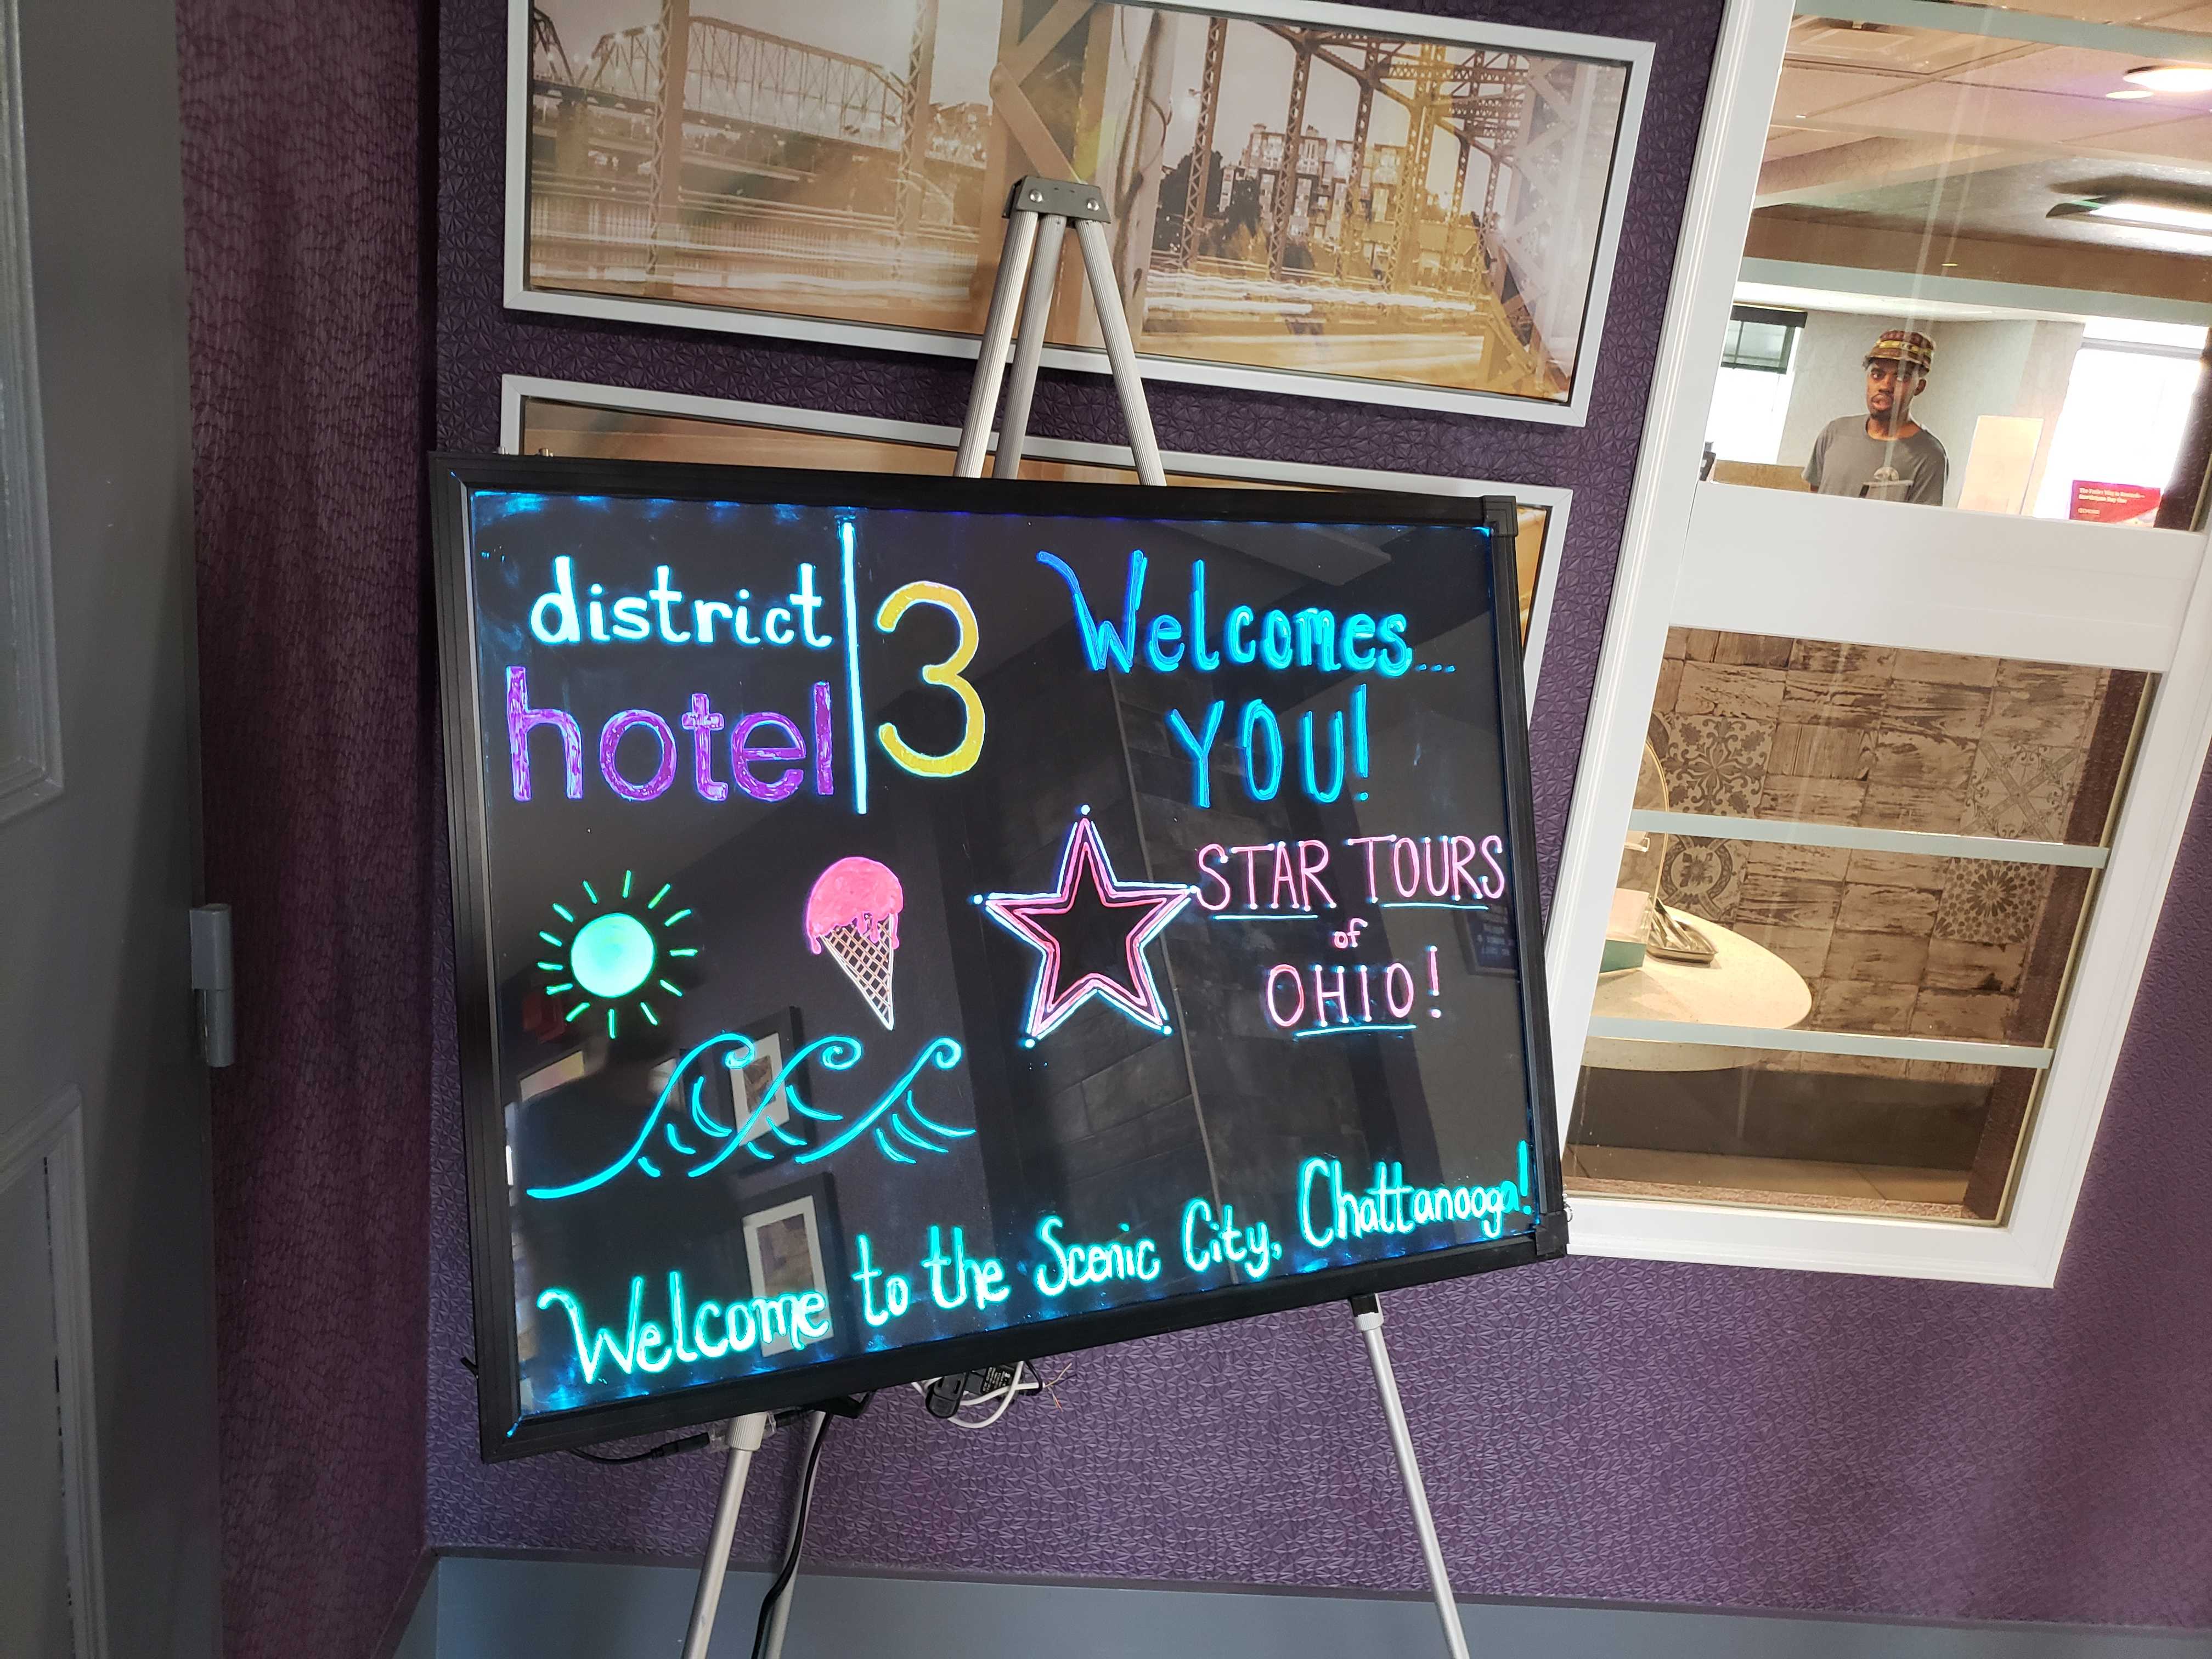 district
hotel
3
Welcomes...
YOU!
STAR TOURS
of
OHIO!
Welcome to the Scenic City, Chattanooga!